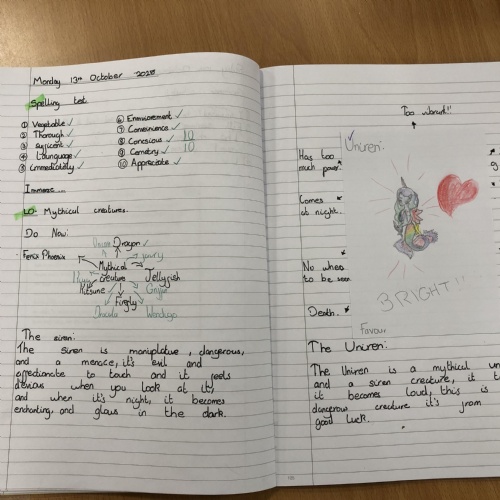 Monday 13th October 2025
Spelling test
① Vegetable ✓
② Thorough ✓
③ Suficent ✓
④ Launguage ✓
⑤ Immediately ✓
⑥ Enviuroement ✓
⑦ Convenience ✓
⑧ Consious ✓
⑨ Cemetry ✓
⑩ Appreciate ✓
10
10
Immerse...
LO: Mythical creatures.
Do Now:
Dragon ✓
Fenix Phoenix
Mythical
creature
Jellyfish
Kitsune
Firefly
Dracula
Wendigo
The siren:
The siren is maniplative, dangerous,
and a menace, it's evil and
affectionate to touch and it feels
devious when you look at it,
and when it's night, it becomes
enchanting and glows in the dark.
Too vibrant!!
Uniren:
Has too
much power.
Comes
at night.
No where
to be seen
Death.
BRIGHT!!
Favour
The Uniren:
The Uniren is a mythical
and a siren creature, it
it becomes loud, this is
dangerous creature it's from
good luck.